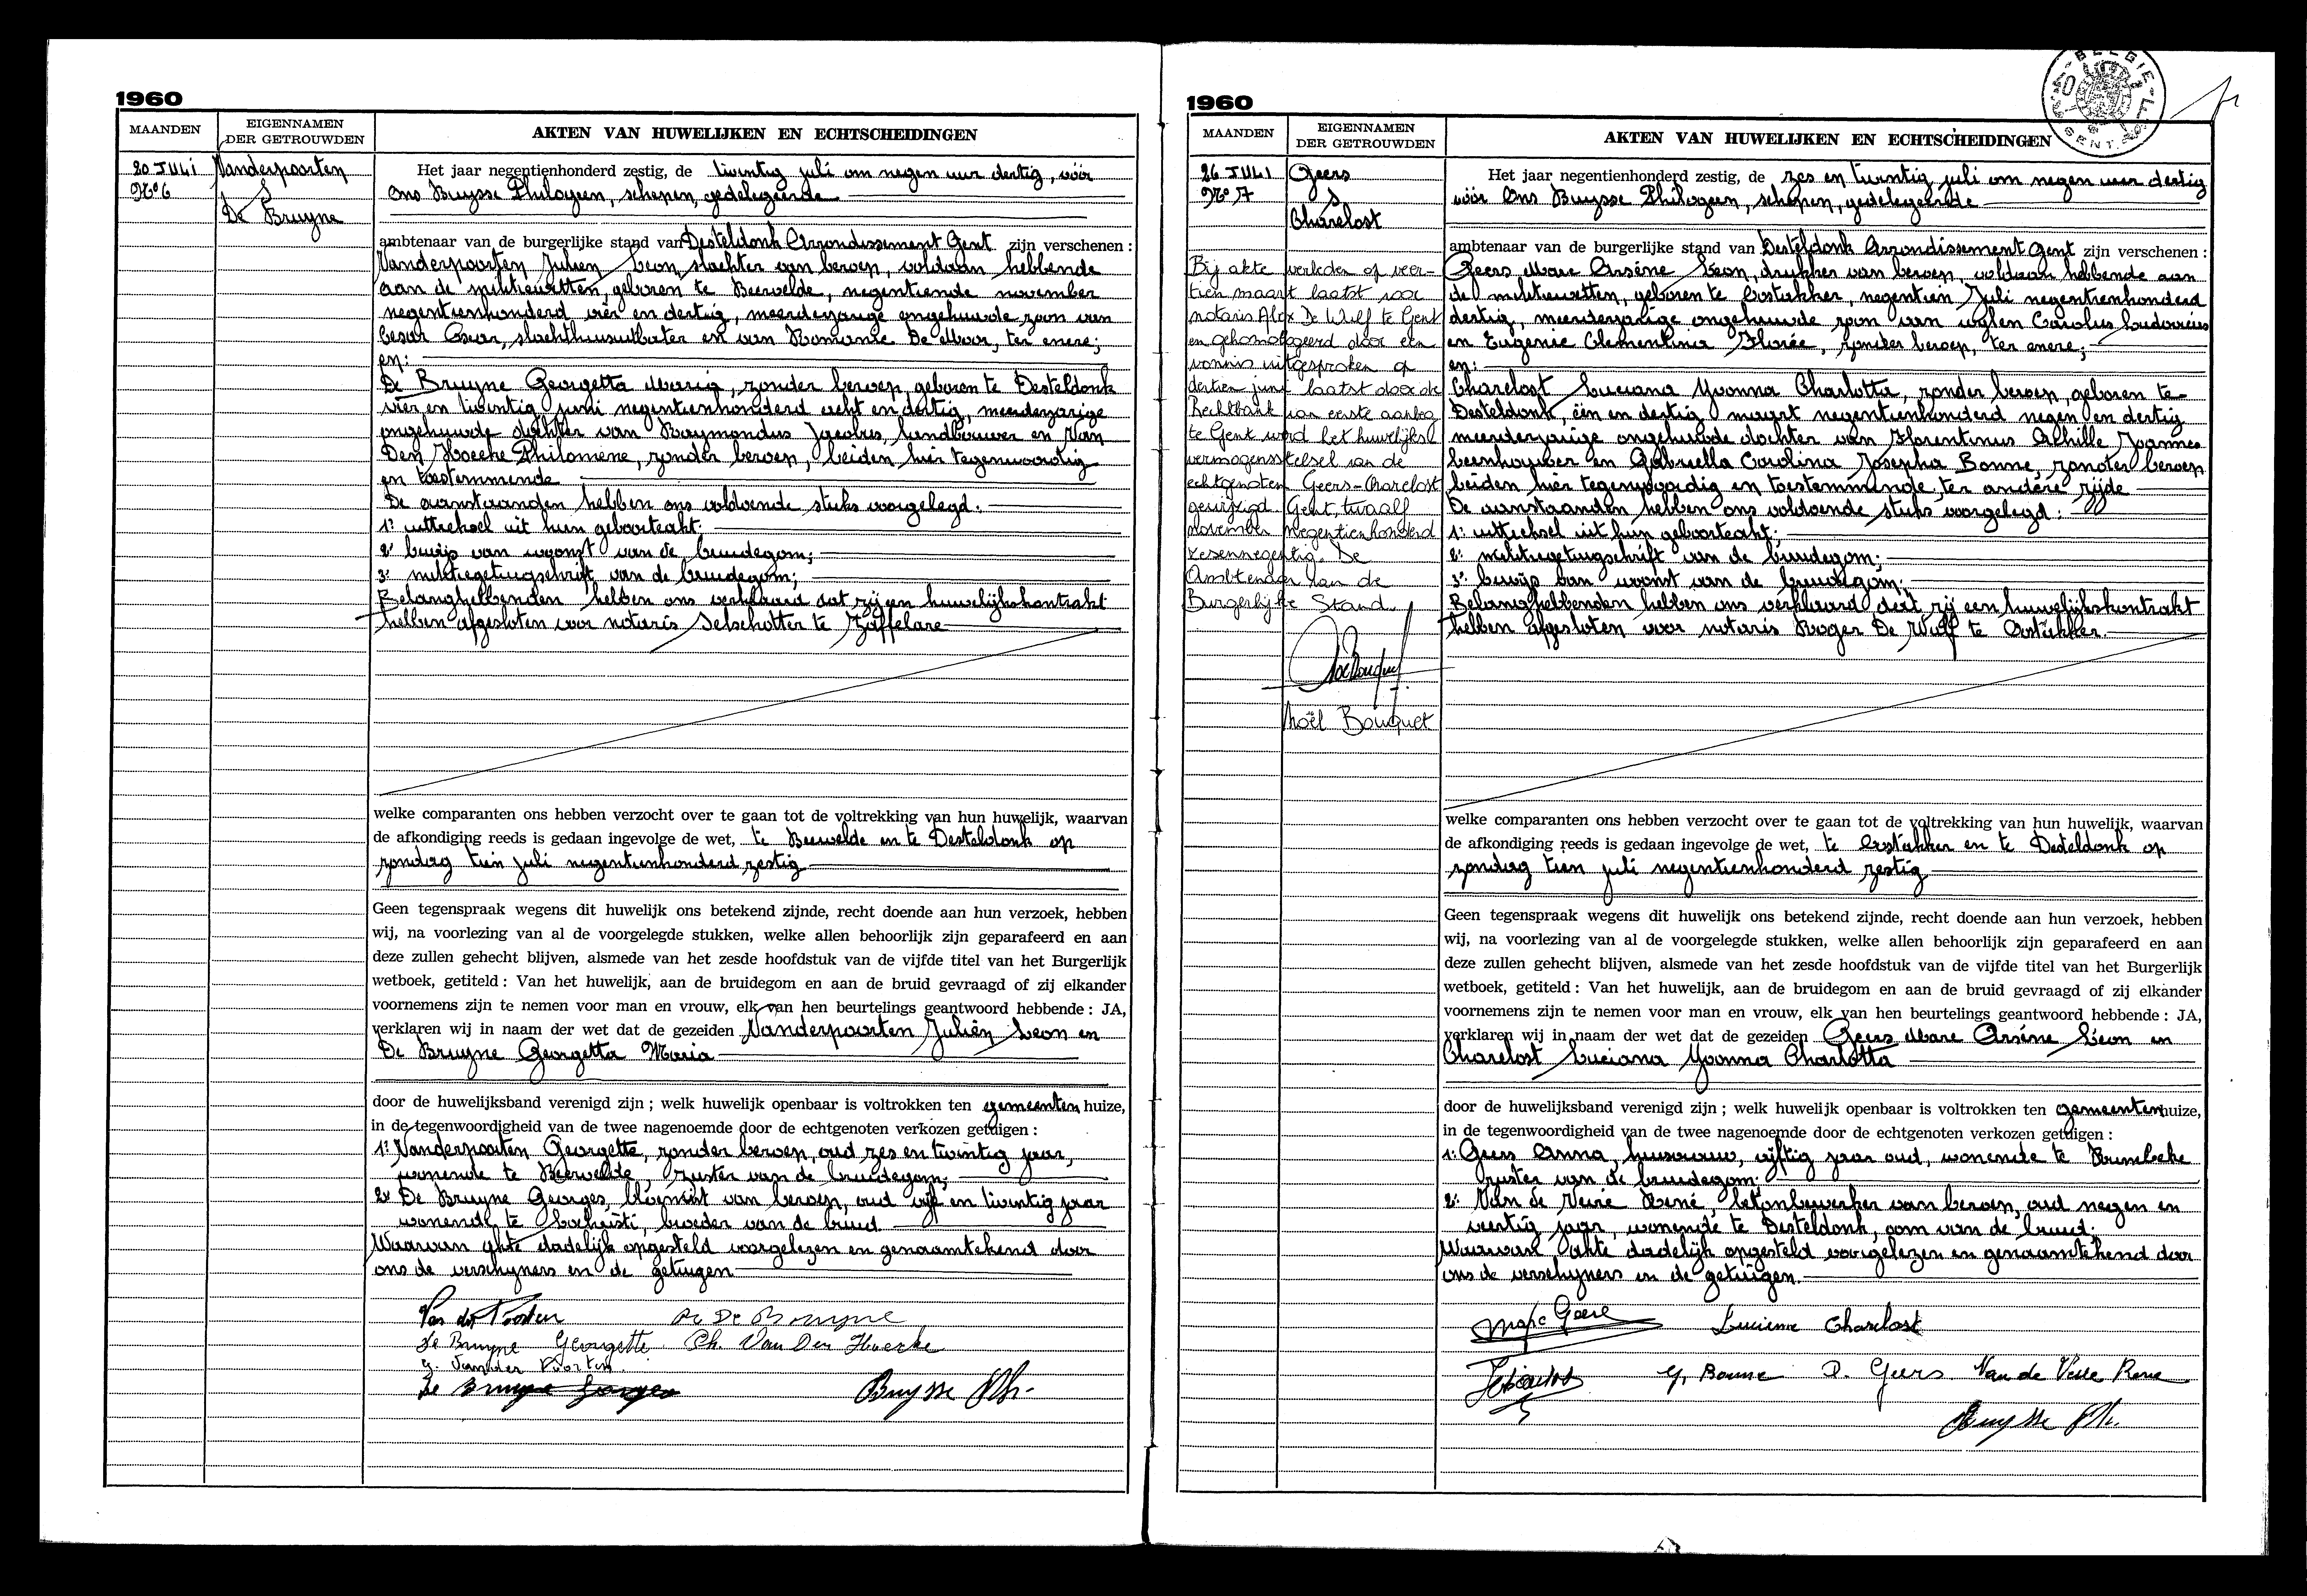 1960
MAANDEN
EIGENNAMEN
DER GETROUWDEN
AKTEN VAN HUWELIJKEN EN ECHTSCHEIDINGEN
20 JULI
N° 6
Vanderpoorten
&
De Bruyne
Het jaar negentienhonderd zestig, de twintig juli om negen uur dertig, vóór
Ons Buysse Philogeen, schepen, gedelegeerde
ambtenaar van de burgerlijke stand van Desteldonk Arrondissement Gent zijn verschenen :
Vanderpoorten Julien Leon, slachter van beroep, voldaan hebbende
aan de militiewetten, geboren te Beervelde, negentiende november
negentienhonderd vier en dertig, meerderjarige ongehuwde zoon van
Cesar Oscar, slachthuisuitbater en van Romanie De Moor, ter enere;
en:
De Bruyne Georgetta Maria, zonder beroep, geboren te Desteldonk
vier en twintig juni negentienhonderd acht en dertig, meerderjarige
ongehuwde dochter van Raymondus Jacobus, landbouwer en Van
Den Hoecke Philomene, zonder beroep, beiden hier tegenwoordig
en toestemmende
De aanstaanden hebben ons voldoende stuks voorgelegd.
1: uittreksel uit hun geboorteakt:
2: bewijs van woonst van de bruidegom;
3: militiegetuigschrift van de bruidegom;
Belanghebbenden hebben ons verklaard dat zij een huwelijkskontrakt
hebben afgesloten voor notaris Selschotter te Zaffelare
welke comparanten ons hebben verzocht over te gaan tot de voltrekking van hun huwelijk, waarvan
de afkondiging reeds is gedaan ingevolge de wet, te Beervelde en te Desteldonk op
zondag tien juli negentienhonderd zestig
Geen tegenspraak wegens dit huwelijk ons betekend zijnde, recht doende aan hun verzoek, hebben
wij, na voorlezing van al de voorgelegde stukken, welke allen behoorlijk zijn geparafeerd en aan
deze zullen gehecht blijven, alsmede van het zesde hoofdstuk van de vijfde titel van het Burgerlijk
wetboek, getiteld : Van het huwelijk, aan de bruidegom en aan de bruid gevraagd of zij elkander
voornemens zijn te nemen voor man en vrouw, elk van hen beurtelings geantwoord hebbende : JA,
verklaren wij in naam der wet dat de gezeiden Vanderpoorten Julien Leon en
De Bruyne Georgetta Maria
door de huwelijksband verenigd zijn ; welk huwelijk openbaar is voltrokken ten gemeenten huize,
in de tegenwoordigheid van de twee nagenoemde door de echtgenoten verkozen getuigen :
1: Vanderpoorten Georgette, zonder beroep, oud zes en twintig jaar,
wonende te Beervelde, zuster van de bruidegom;
2: De Bruyne Georges, bloemist van beroep, oud vijf en twintig jaar
wonende te Lochristi, broeder van de bruid
Waarvan akte dadelijk opgesteld voorgelezen en genaamtekend door
ons de verschijners en de getuigen
Van der Poorten De Bruyne
De Bruyne Georgette Ph. Van Den Hoecke
G. Vander Poorten
De Bruyne Georges Buysse Ph.
1960
MAANDEN
EIGENNAMEN
DER GETROUWDEN
AKTEN VAN HUWELIJKEN EN ECHTSCHEIDINGEN
26 JULI
N° 7
Geers
&
Charelost
Bij akte verleden op veer-
tien maart laatst voor
notaris Alex De Wulf te Gent
en gehomologeerd door een
vonnis uitgesproken op
dertien juni laatst door de
Rechtbank van eerste aanleg
te Gent werd het huwelijks
vermogensstelsel van de
echtgenoten Geers-Charelost
gewijzigd. Gent, twaalf
november negentienhonderd
zesennegentig. De
Ambtenaar van de
Burgerlijke Stand.
Noël Bouquet
Het jaar negentienhonderd zestig, de zes en twintig juli om negen uur dertig
vóór Ons Buysse Philogeen, schepen, gedelegeerde
ambtenaar van de burgerlijke stand van Desteldonk Arrondissement Gent zijn verschenen :
Geers Marc Arsène Leon, drukker van beroep, voldaan hebbende aan
de militiewetten, geboren te Oostakker, negentien Juli negentienhonderd
dertig, meerderjarige ongehuwde zoon van wijlen Carolus Ludovicus
en Eugenie Clementina Florée, zonder beroep, ter enere;
en:
Charelost Luciana Yvonna Charlotta, zonder beroep, geboren te
Desteldonk, één en dertig maart negentienhonderd negen en dertig
meerderjarige ongehuwde dochter van Florentinus Achille Joannes
beenhouwer en Gabriella Carolina Josepha Bonne, zonder beroep
beiden hier tegenwoordig en toestemmende, ter andere zijde
De aanstaanden hebben ons voldoende stuks voorgelegd:
1: uittreksel uit hun geboorteakt;
2: militiegetuigschrift van de bruidegom;
3: bewijs van woonst van de bruidegom.
Belanghebbenden hebben ons verklaard dat zij een huwelijkskontrakt
hebben afgesloten voor notaris Roger De Wulf te Oostakker.
welke comparanten ons hebben verzocht over te gaan tot de voltrekking van hun huwelijk, waarvan
de afkondiging reeds is gedaan ingevolge de wet, te Oostakker en te Desteldonk op
zondag tien juli negentienhonderd zestig
Geen tegenspraak wegens dit huwelijk ons betekend zijnde, recht doende aan hun verzoek, hebben
wij, na voorlezing van al de voorgelegde stukken, welke allen behoorlijk zijn geparafeerd en aan
deze zullen gehecht blijven, alsmede van het zesde hoofdstuk van de vijfde titel van het Burgerlijk
wetboek, getiteld : Van het huwelijk, aan de bruidegom en aan de bruid gevraagd of zij elkander
voornemens zijn te nemen voor man en vrouw, elk van hen beurtelings geantwoord hebbende : JA,
verklaren wij in naam der wet dat de gezeiden Geers Marc Arsène Leon en
Charelost Luciana Yvonna Charlotta
door de huwelijksband verenigd zijn ; welk huwelijk openbaar is voltrokken ten gemeentenhuize,
in de tegenwoordigheid van de twee nagenoemde door de echtgenoten verkozen getuigen :
1: Geers Anna, huisvrouw, vijftig jaar oud, wonende te
zuster van de bruidegom.
2: Van de Veire René, betonbewerker van beroep, oud negen en
veertig jaar, wonende te Desteldonk, oom van de bruid.
Waarvan akte dadelijk opgesteld voorgelezen en genaamtekend door
ons de verschijners en de getuigen.
Marc Geers Lucienne Charelost
G. Bonne A. Geers Van de Veire Rene
Buysse Ph.